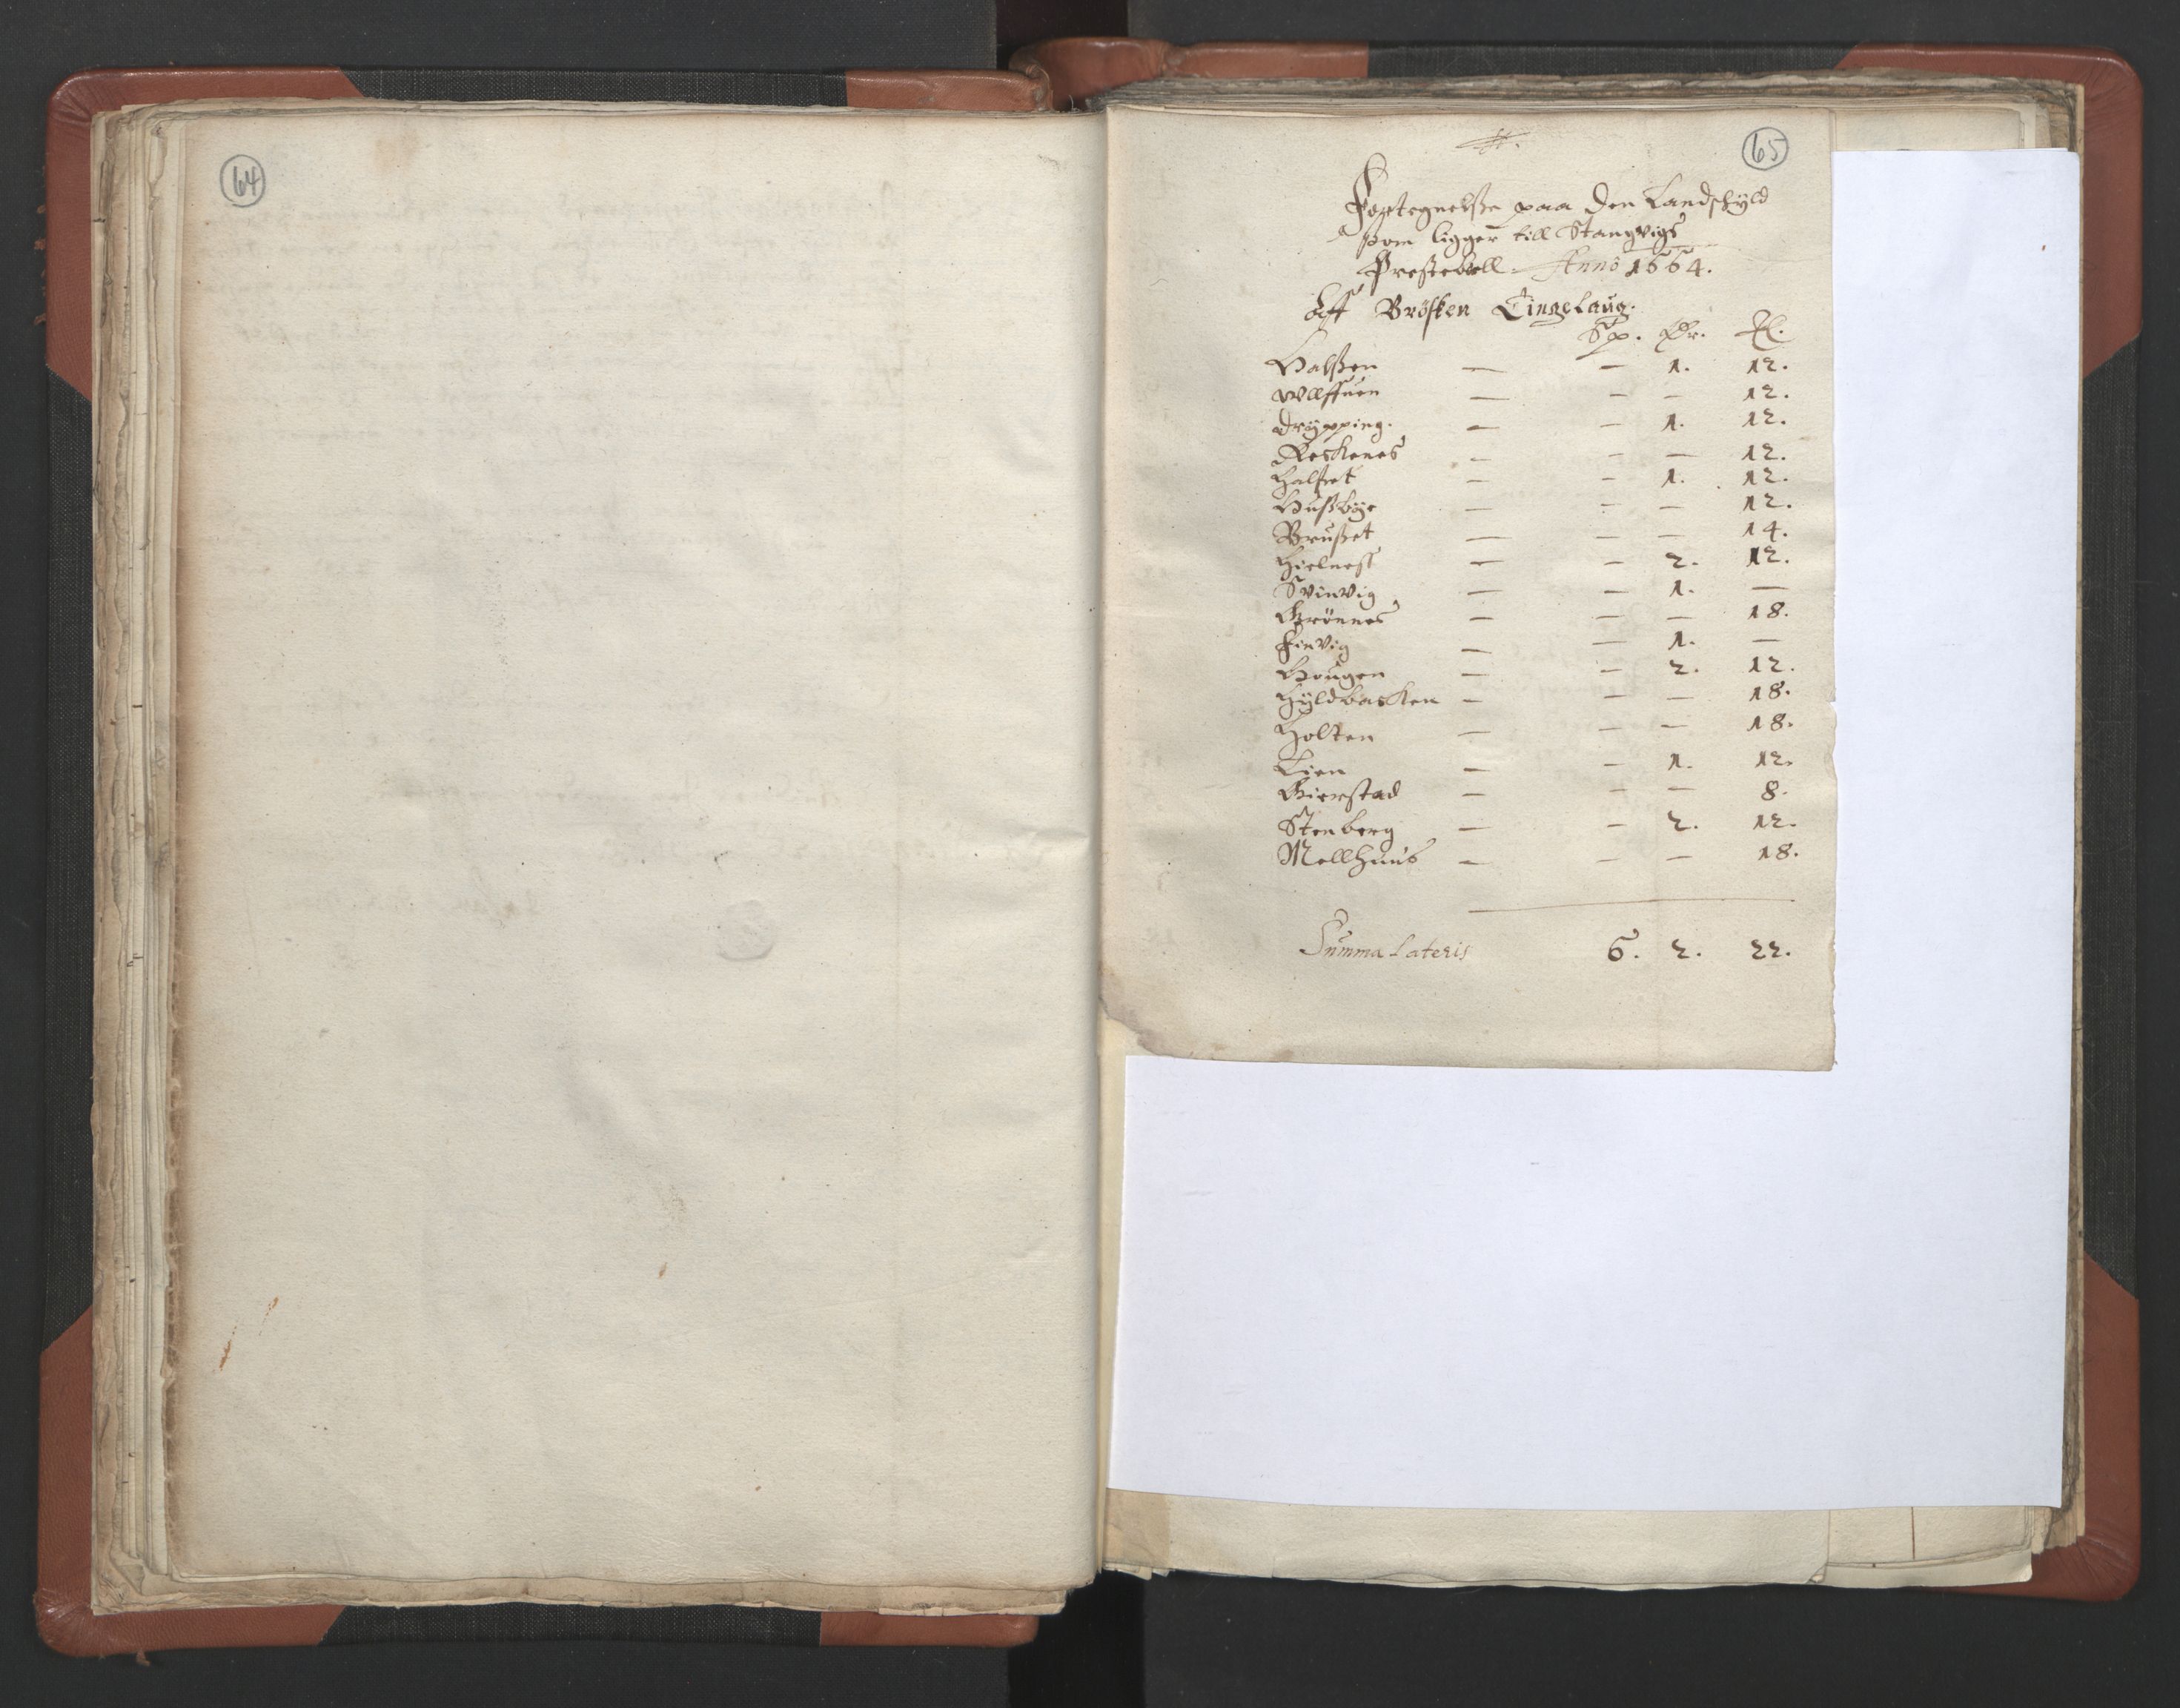 64
65
Fortegnelsse paa den Landschyld
som ligger till Stangvigs
Presteboll. Anno 1664.
Aff Brøsken Tingelaug.
Sp. Ør.
Halssen — — 1. 12.
Ulffuen — — — 12.
Drøpping. — — 1. 12.
Reskenes — — — 12.
Halset — — 1. 12.
Hussbye — — — 12.
Brusset — — — 14.
Hielness — — 2. 12.
Svinvig — — 1. —
Grønnes — — — 18.
Finvig — — 1. —
Hougen — — 2. 12.
Hyldbacken — — — 18.
Holten — — — 18.
Lien — — 1. 12.
Gierstad — — — 8.
Stenberg — — 2. 12.
Mellhuus — — — 18.
Summa Lateris 6. 2. 22.